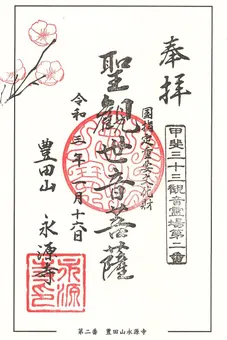 奉拝
甲斐三十三観音霊場第二番
国指定重要文化財
聖観世音菩薩
令和三年一月十六日
豊田山
永源寺
第二番 豊田山永源寺